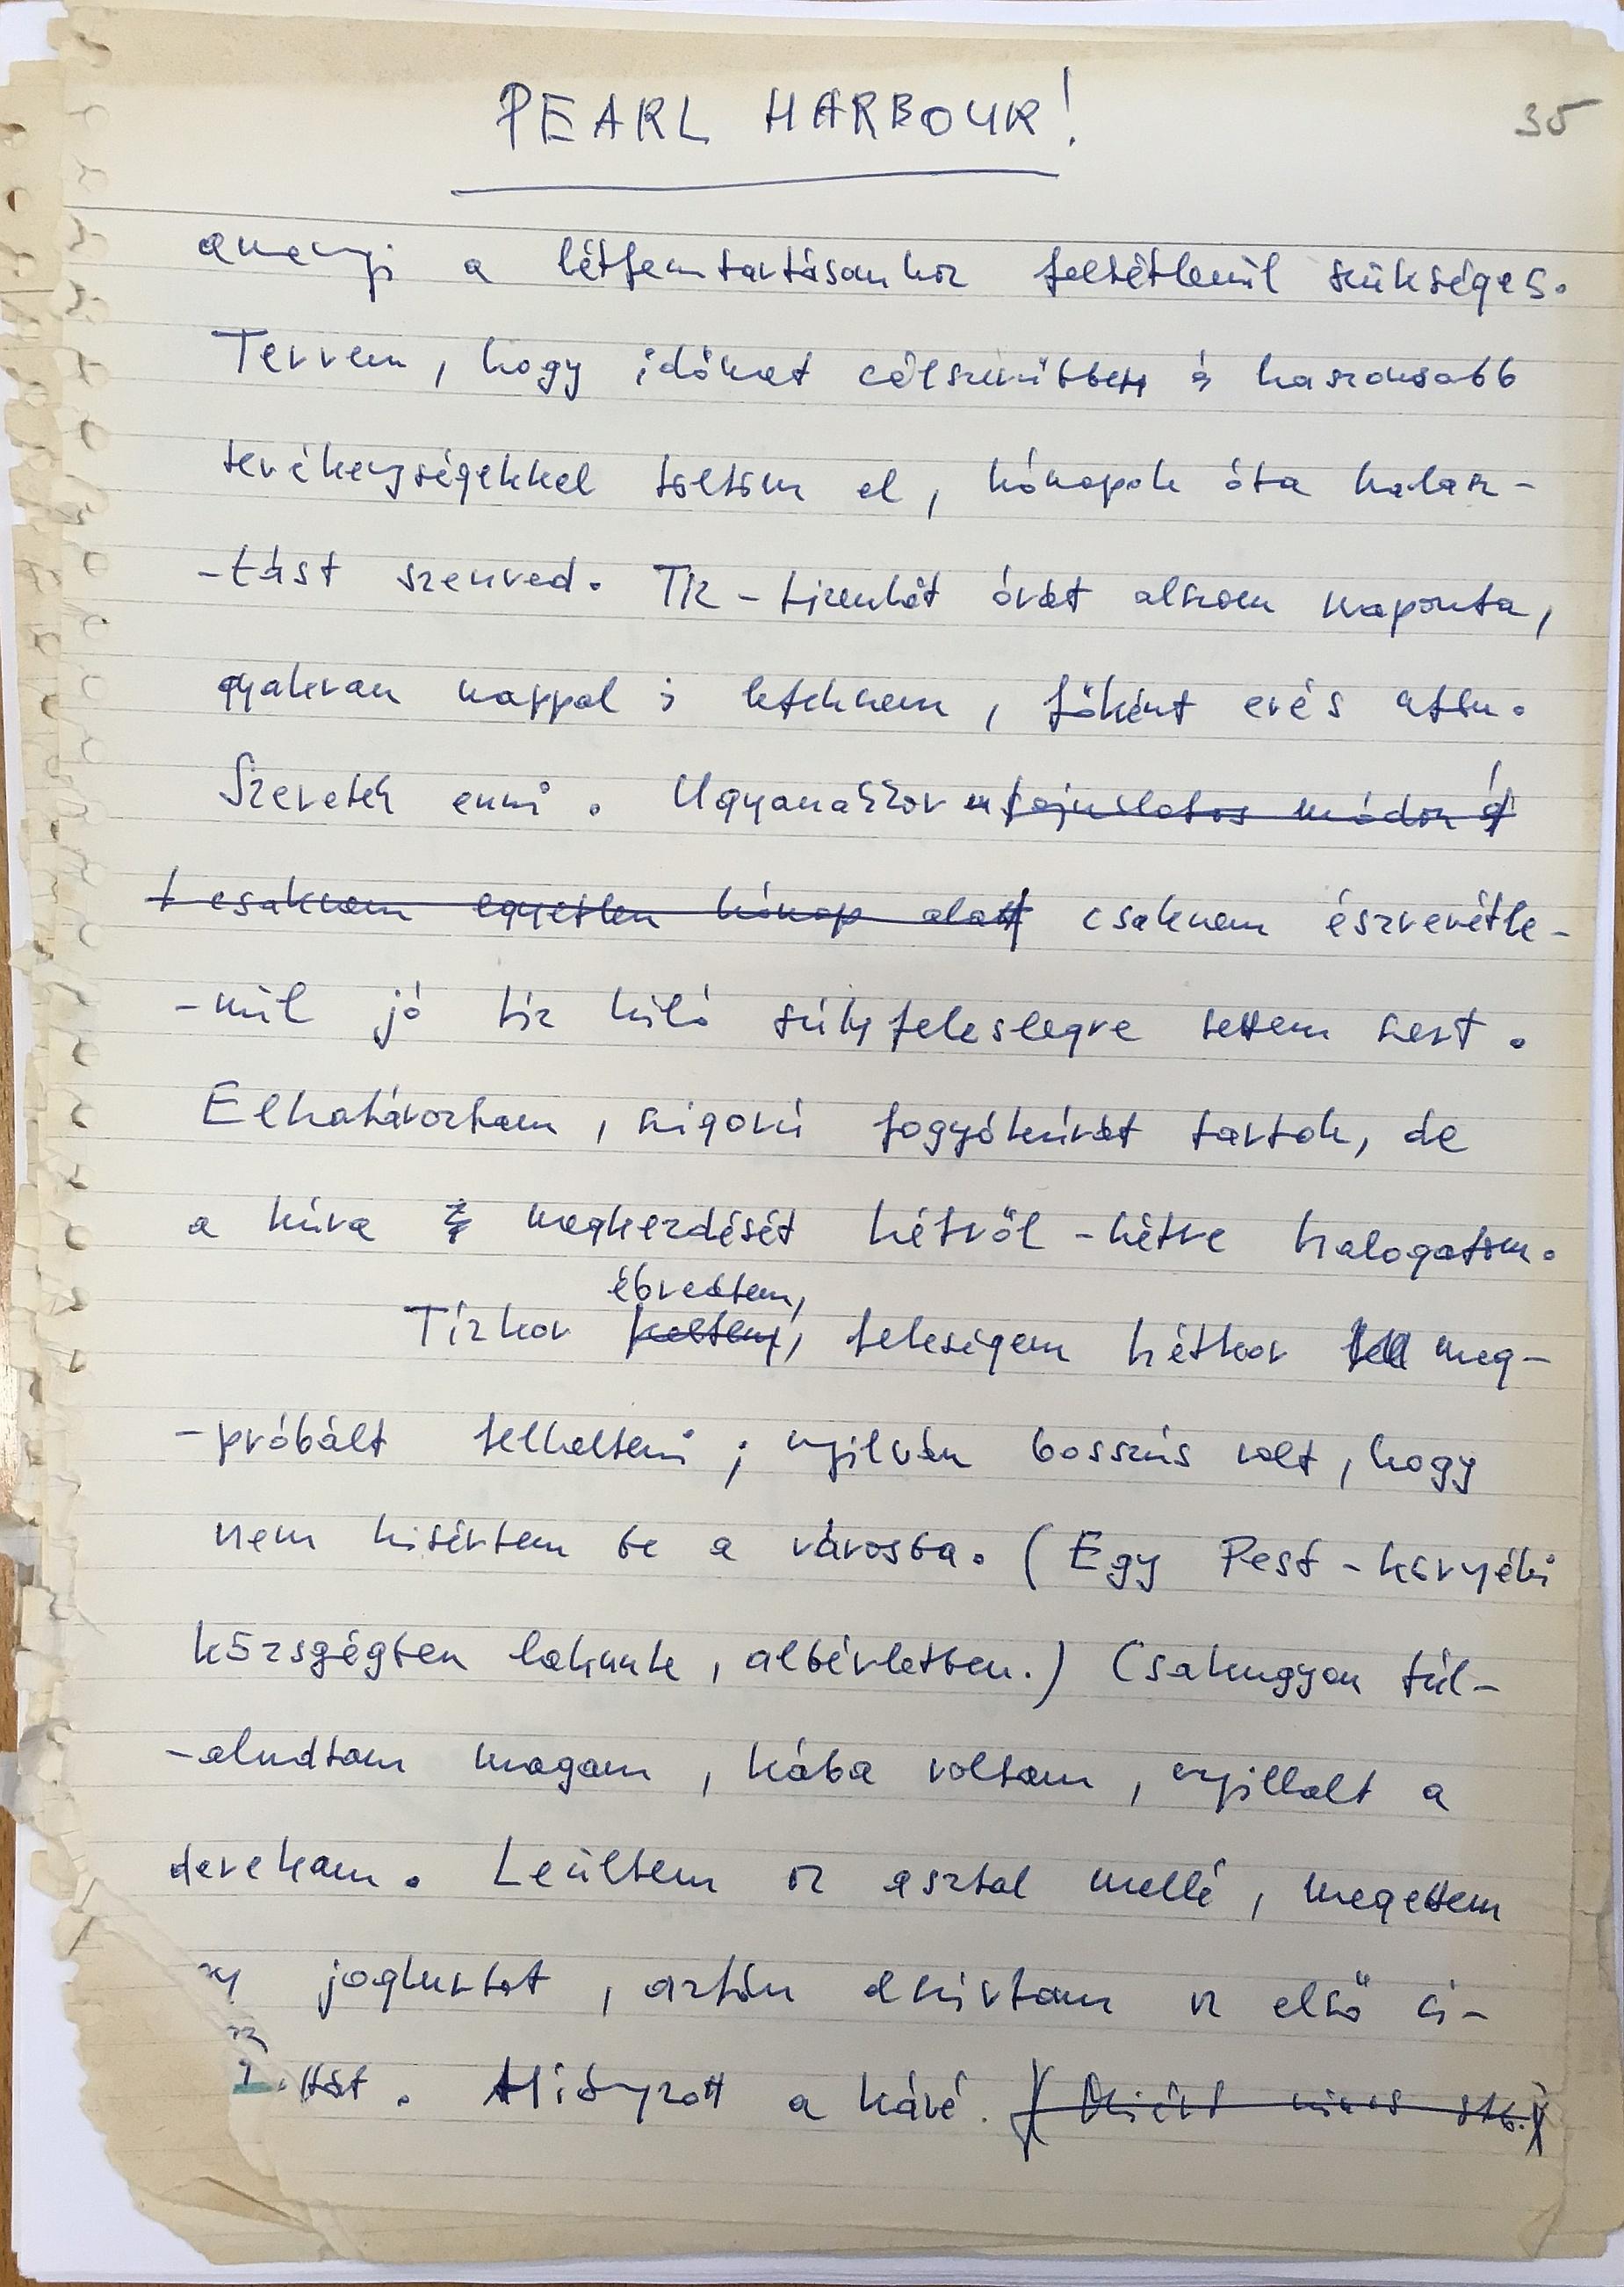 PEARL HARBOUR!
35
amenyi a létfenntartásomhoz feltétlenül szükséges.
Tervem, hogy időmet célszerűbben s hasznosabb
tevékenységekkel töltöm el, hónapok óta halasz-
-tást szenved. Tíz-tizenhét órát alszom naponta,
gyakran nappal is lefekszem, főként evés után.
Szeretek enni. Ugyanakkor sajnálatos módon
csaknem egyetlen hónap alatt csaknem észrevétle-
-nül jó tíz kiló súlyfeleslegre tettem szert.
Elhatároztam, szigorú fogyókúrát tartok, de
a kúra megkezdését hétről-hétre halogatom.
ébredtem,
Tízkor keltem, feleségem hétkor meg-
-próbált felkelteni; nyilván bosszús volt, hogy
nem kisértem be a városba. (Egy Pest-környéki
községben lakunk, albérletben.) Csakugyan túl-
-aludtam magam, kába voltam, nyillalt a
derekam. Leültem az asztal mellé, megettem
joghurtot, aztán elszívtam az első ci-
Hiányzott a kávé. (Miért nincs stb.)